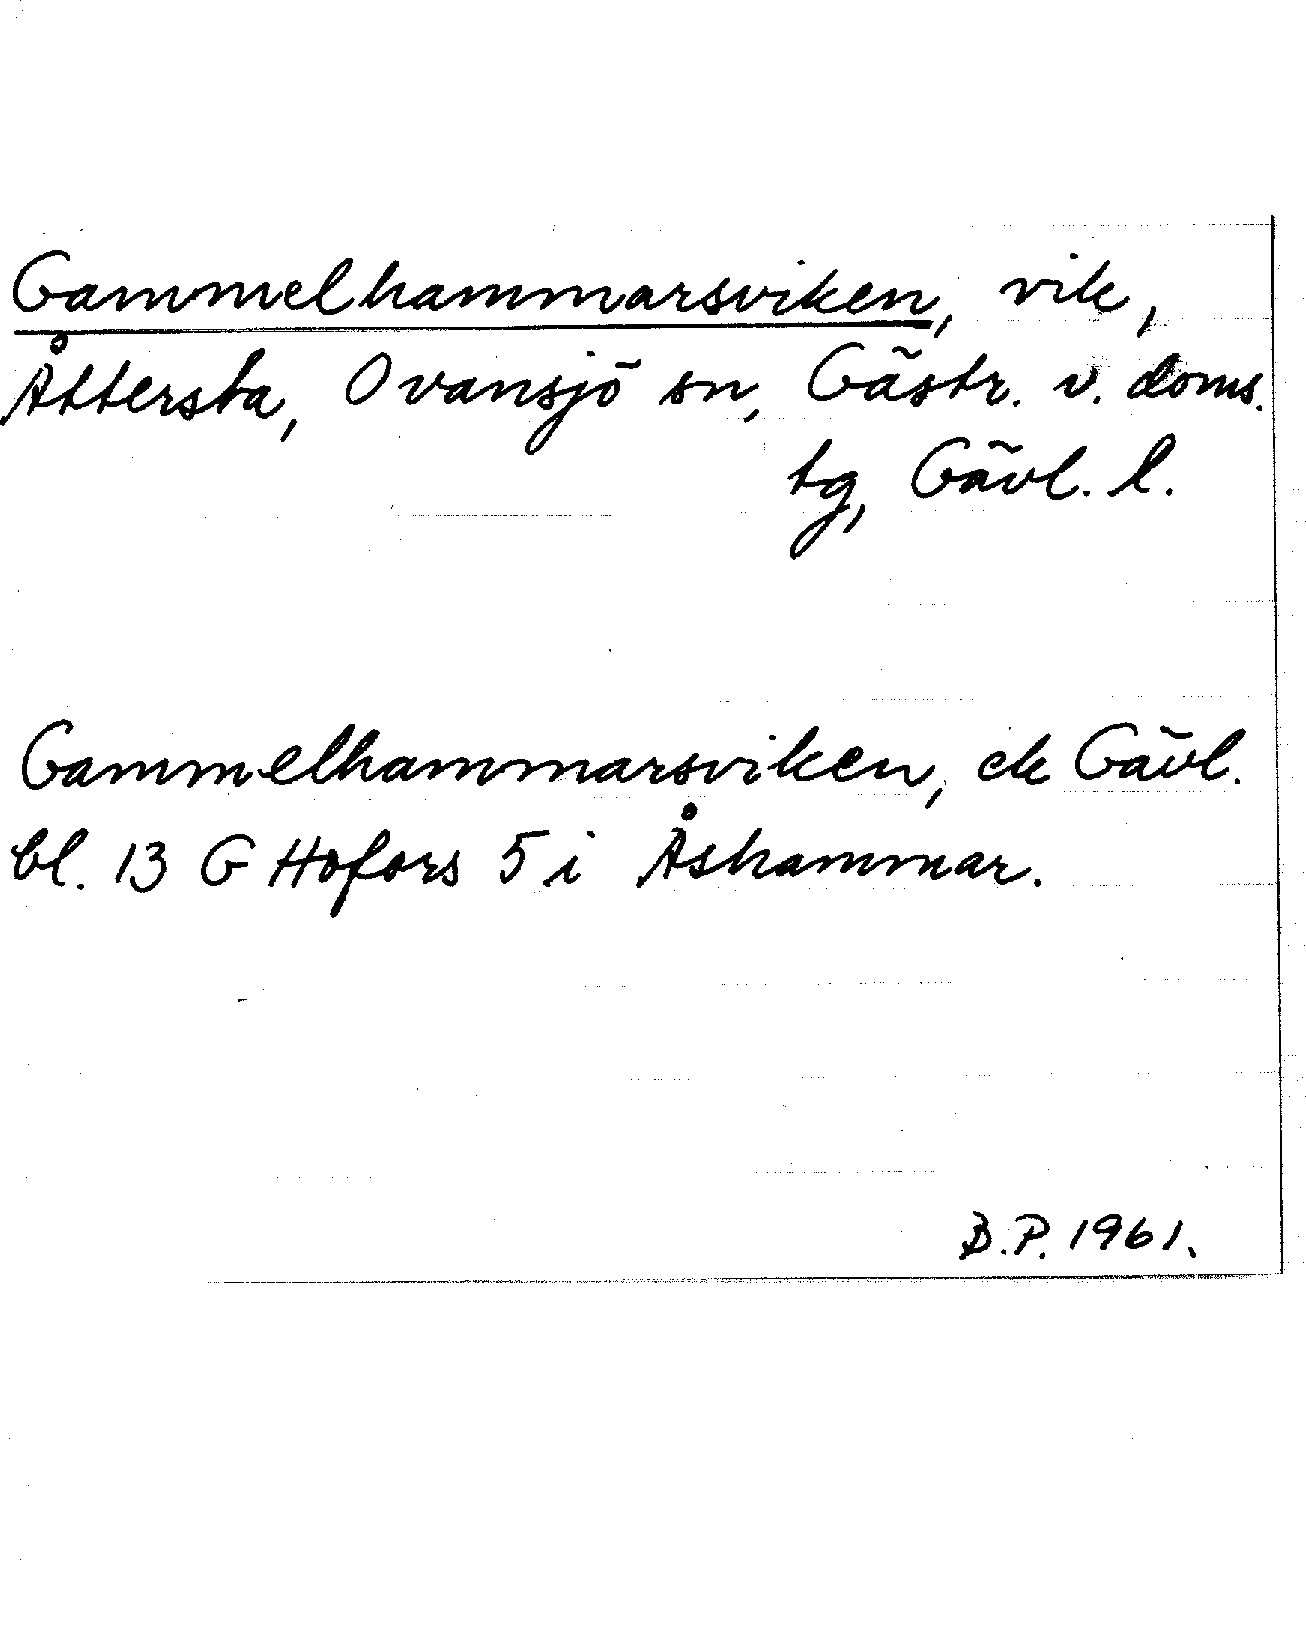 Gammelhammarsviken, vik,
Åttersta, Ovansjö sn, Gästr. v. doms.
tg, Gävl. l.
Gammelhammarsviken, ek Gävl.
bl. 13 G Hofors 5 i Åshammar.
B.P. 1961.